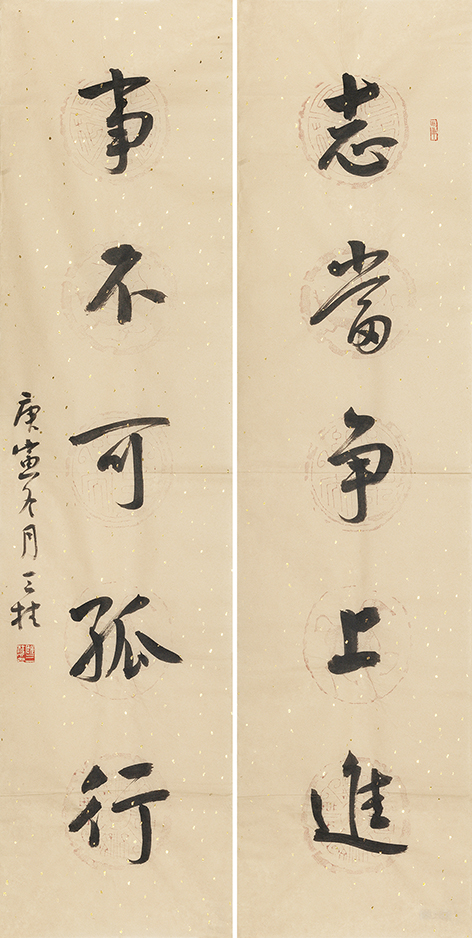 志當争上進
事不可孤行
庚寅冬月三桂